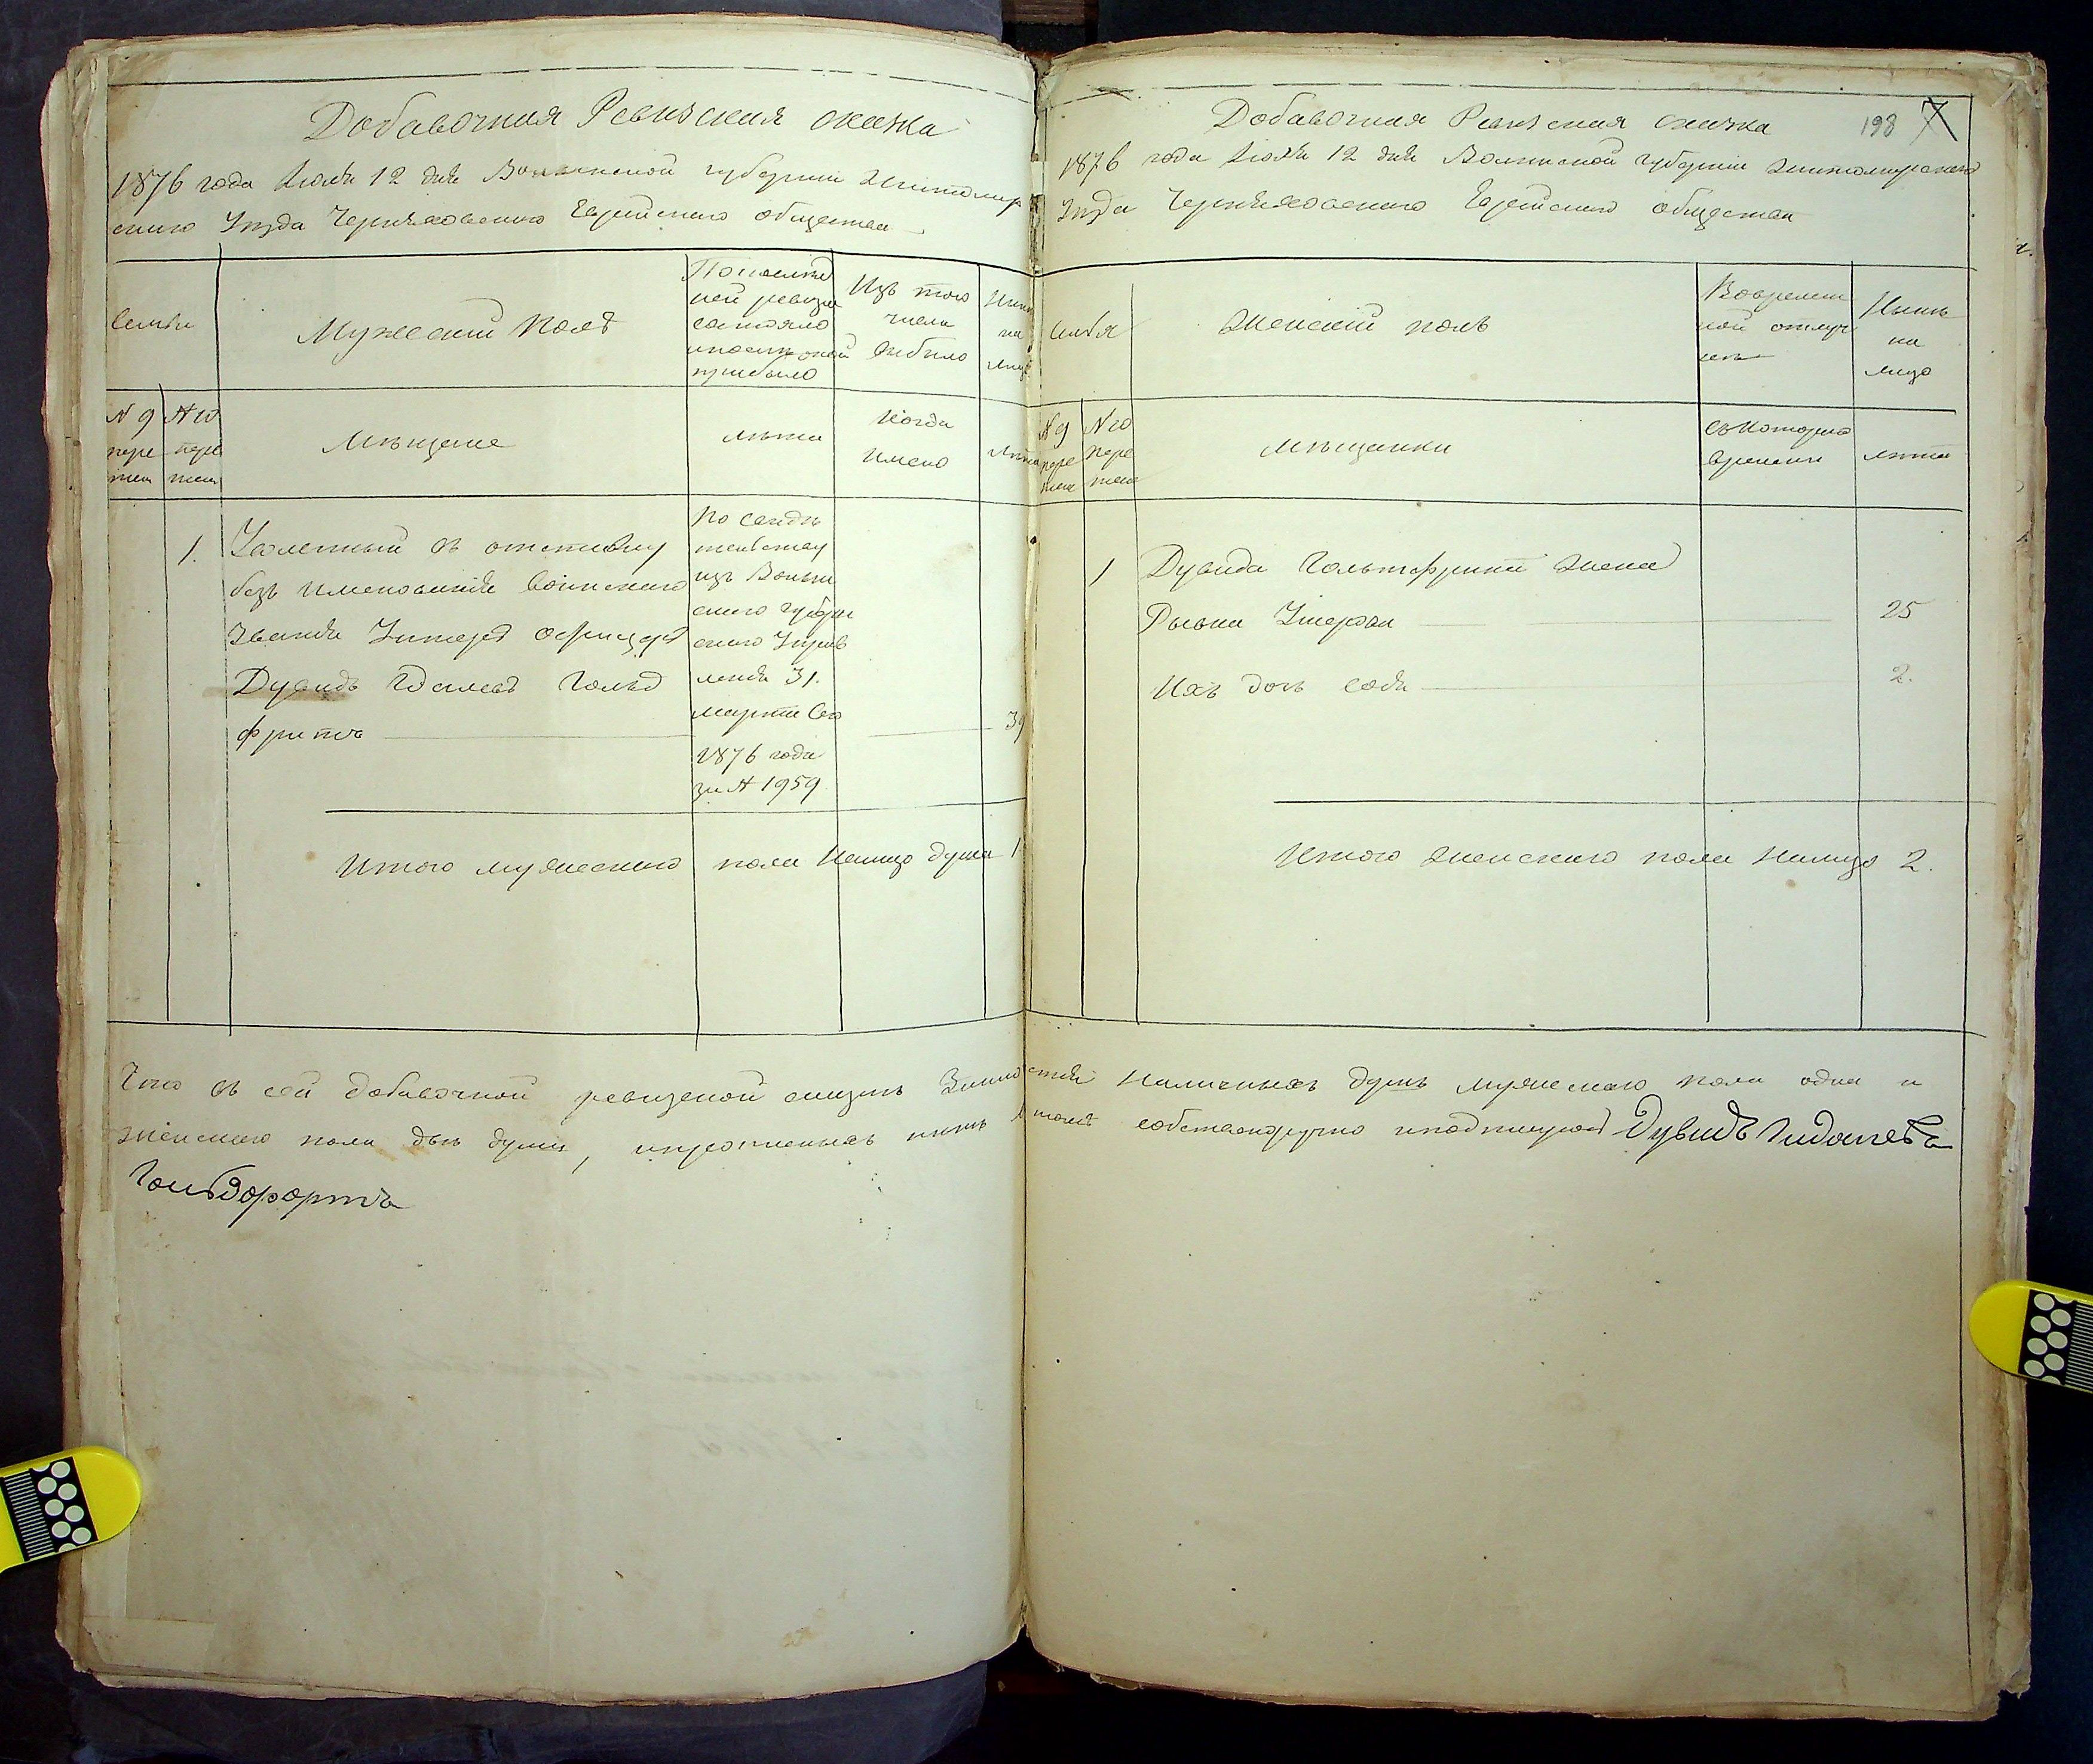 Добавочная Ревизская сказка
1876 года Іюля 12 дня Волынской губерніи Житомир
скаго Уезда Черняховскаго Еврейскаго общества
Семьи
Мужескій полъ
По послед
ней ревизіи
состояло
и после оной
прибыло
Изъ того
числа
выбыло
Ныне
на
лицо
№ 9
пере
писи
№ 10
пере
писи
Мещане
лета
Когда
именно
лета
1. Уволенный въ отставку
безъ именованія воинскаго
званія Унтеръ офицеръ
Дувидъ Гдалевъ Гольд
фритъ 39
По свиде
тельству
изъ Волын
скаго губерн
скаго Управ
ленія 31.
марта Сего
1876 года
за № 1959
Итого мужескаго пола Налицо душа 1
Добавочная Ревизская сказка
198 7
1876 года Іюля 12 дня Волынской губерніи Житомирскаго
Уезда Черняховскаго Еврейскаго общества
Семья
Женскій полъ
Во времен
ной отлуч
ке
Ныне
на
лицо
№ 9
пере
писи
№ 10
пере
писи
Мещанки
Съ котораго
времени
лета
1 Дувида Гольтфрита жена
25
Ихъ дочь Сося 2.
Итого женскаго пола Налицо 2.
Что въ сей добавочной ревизской сказке наличныхъ душъ мужескаго пола одна и
женскаго пола две души, собственноручно подписуюсь Дувидъ Гидалевъ
Гольдфортъ